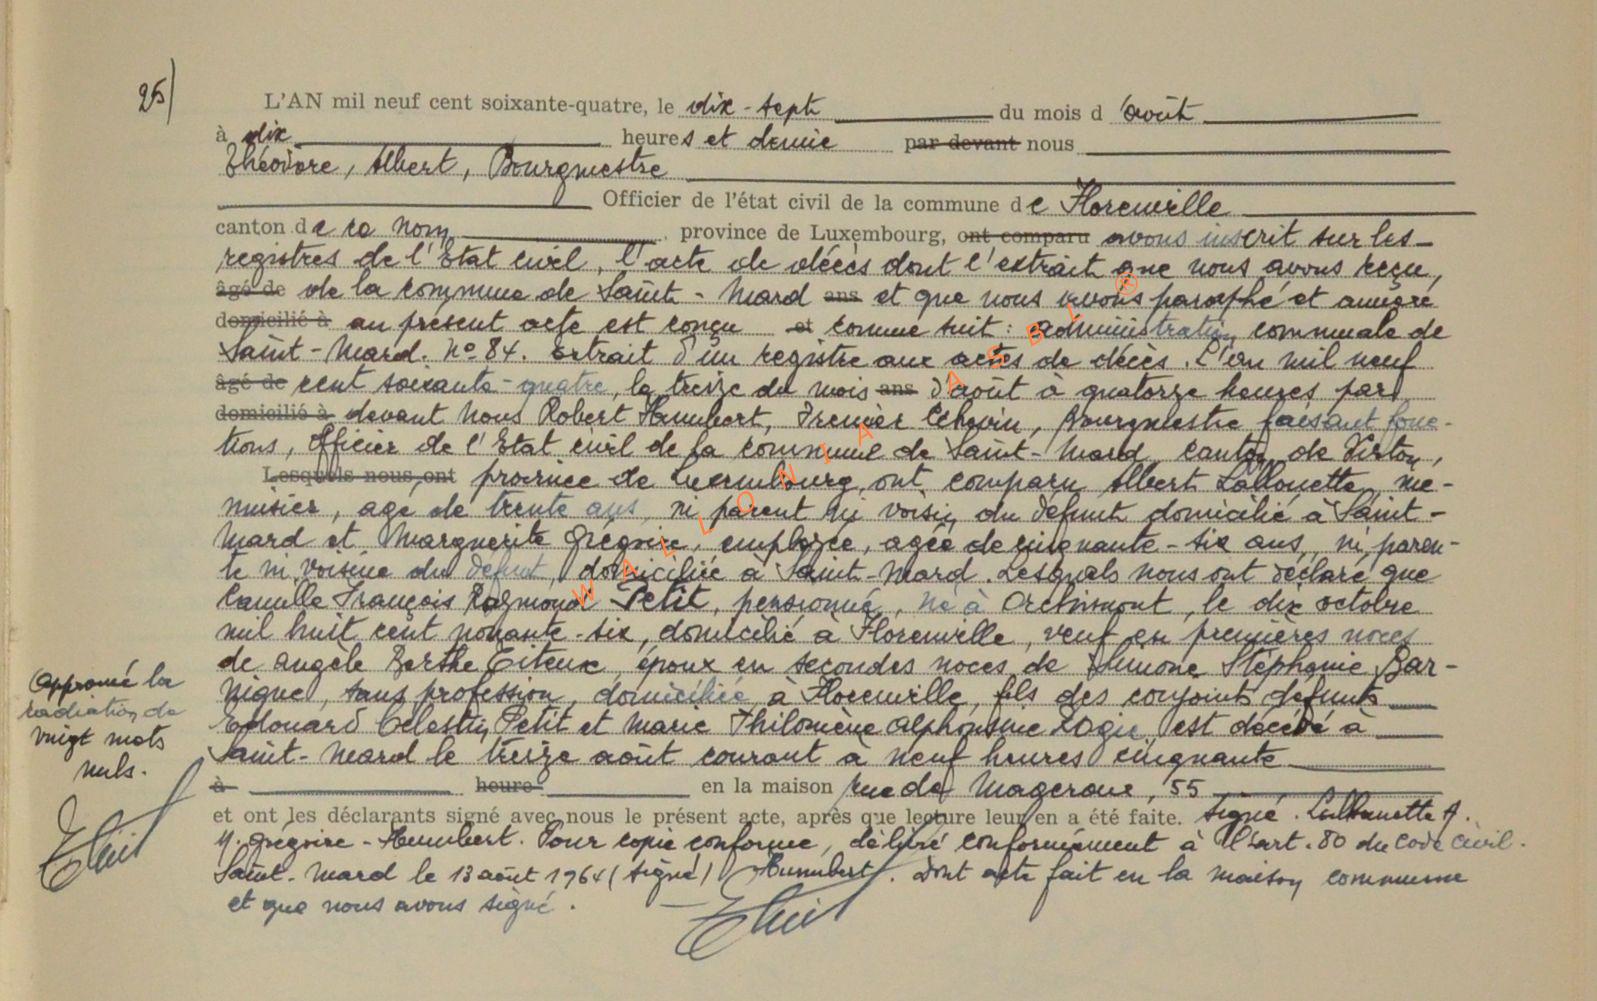 25)
L'AN mil neuf cent soixante-quatre, le dix-sept du mois d'août
à dix heures et demie par devant nous
Théodore, Albert, Bourgmestre
Officier de l'état civil de la commune de Florenville
canton de ce nom province de Luxembourg, ont comparu avons inscrit sur les
registres de l'Etat civil, l'acte de décès dont l'extrait que nous avons reçu,
âgé de de la commune de Saint-Mard ans et que nous avons paraphé et annexé
domicilié à au présent acte est conçu et comme suit : administration communale de
Saint-Mard. N° 84. Extrait d'un registre aux actes de décès. L'an mil neuf
âgé de cent soixante-quatre, le treize du mois ans d'août à quatorze heures par
domicilié à devant Nous Robert Humbert, Premier Echevin, Bourgmestre faisant fonc-
tions, Officier de l'Etat civil de la commune de Saint-Mard, canton de Virton,
Lesquels nous ont province de Luxembourg, ont comparu Albert Lallouette, me-
nuisier, age de trente ans, ni parent ni voisin du défunt domicilié à Saint-
Mard et Marguerite Grégoire, employée, agée de cinquante-six ans, ni paren-
te ni voisine du défunt, domiciliée à Saint-Mard. Lesquels nous ont déclaré que
Camille François Raymond Petit, pensionné, né à Orchimont, le dix octobre
mil huit cent nonante-six, domicilié à Florenville, veuf en premières noces
de Angèle Berthe Titeux, époux en secondes noces de Simone Stéphanie Bar-
nique, sans profession, domiciliée à Florenville, fils des conjoints défunts
Edouard Célestin Petit et Marie Philomène Alphonsine Zogie, est décédé à
Saint-Mard le treize août courant à neuf heures cinquante
à heure en la maison rue de Mageroux, 55
et ont les déclarants signé avec nous le présent acte, après que lecture leur en a été faite. Signé. Lallouette A.
M. Grégoire - Humbert. Pour copie conforme, délivré conformément à l'art. 80 du Code civil.
Saint-Mard le 13 août 1964 (signé) Humbert. Dont acte fait en la maison commune
et que nous avons signé.
Approuvé la
radiation de
vingt mots
nuls.
WALLONIA ASBL ®